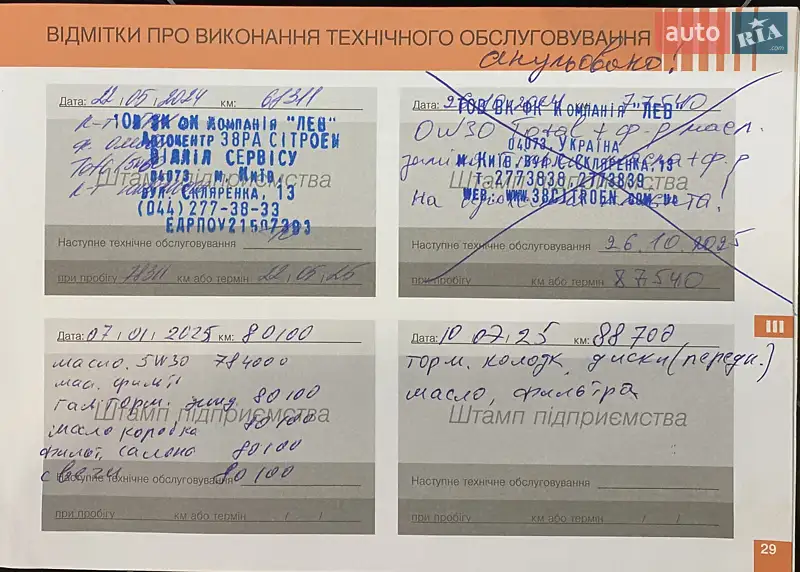 ВІДМІТКИ ПРО ВИКОНАННЯ ТЕХНІЧНОГО ОБСЛУГОВУВАННЯ
auto RIA .com
анульовано!
Дата: 22.05.2024 км: 68311
ТОВ ВК ФК Компанія "ЛЕВ"
Автоцентр 38РА СІТРОЕН
ВІДДІЛ СЕРВІСУ
04073 м. Київ,
Штамп підприємства
вул. СКЛЯРЕНКА, 13
(044) 277-38-33
ЕДРПОУ21507293
Наступне технічне обслуговування
при пробігу 78311 км або термін 22.05.25
Дата: 26.10.2024 77540
ТОВ ВК ФК Компанія "ЛЕВ"
0W30 Total + ф-р масл.
04073, УКРАЇНА
м. Київ, вул. С. СКЛЯРЕНКА, 13
т. 2773838, 2773839
WEB. WWW.38CITROEN.COM.UA
Наступне технічне обслуговування 26.10.2025
при пробігу км або термін 87540
Дата: 07.01.2025 км: 80100
масло. 5W30 784000
мас. фильт
гал. торм. жид 80100
Штамп підприємства
масло коробка 80100
фильт. салона 80100
свечи 80100
Наступне технічне обслуговування
при пробігу км або термін / /
Дата: 10.07.25 км: 88700
торм. колодк, диски (передн.)
масло, фильтра
Штамп підприємства
Наступне технічне обслуговування
при пробігу км або термін / /
III
29